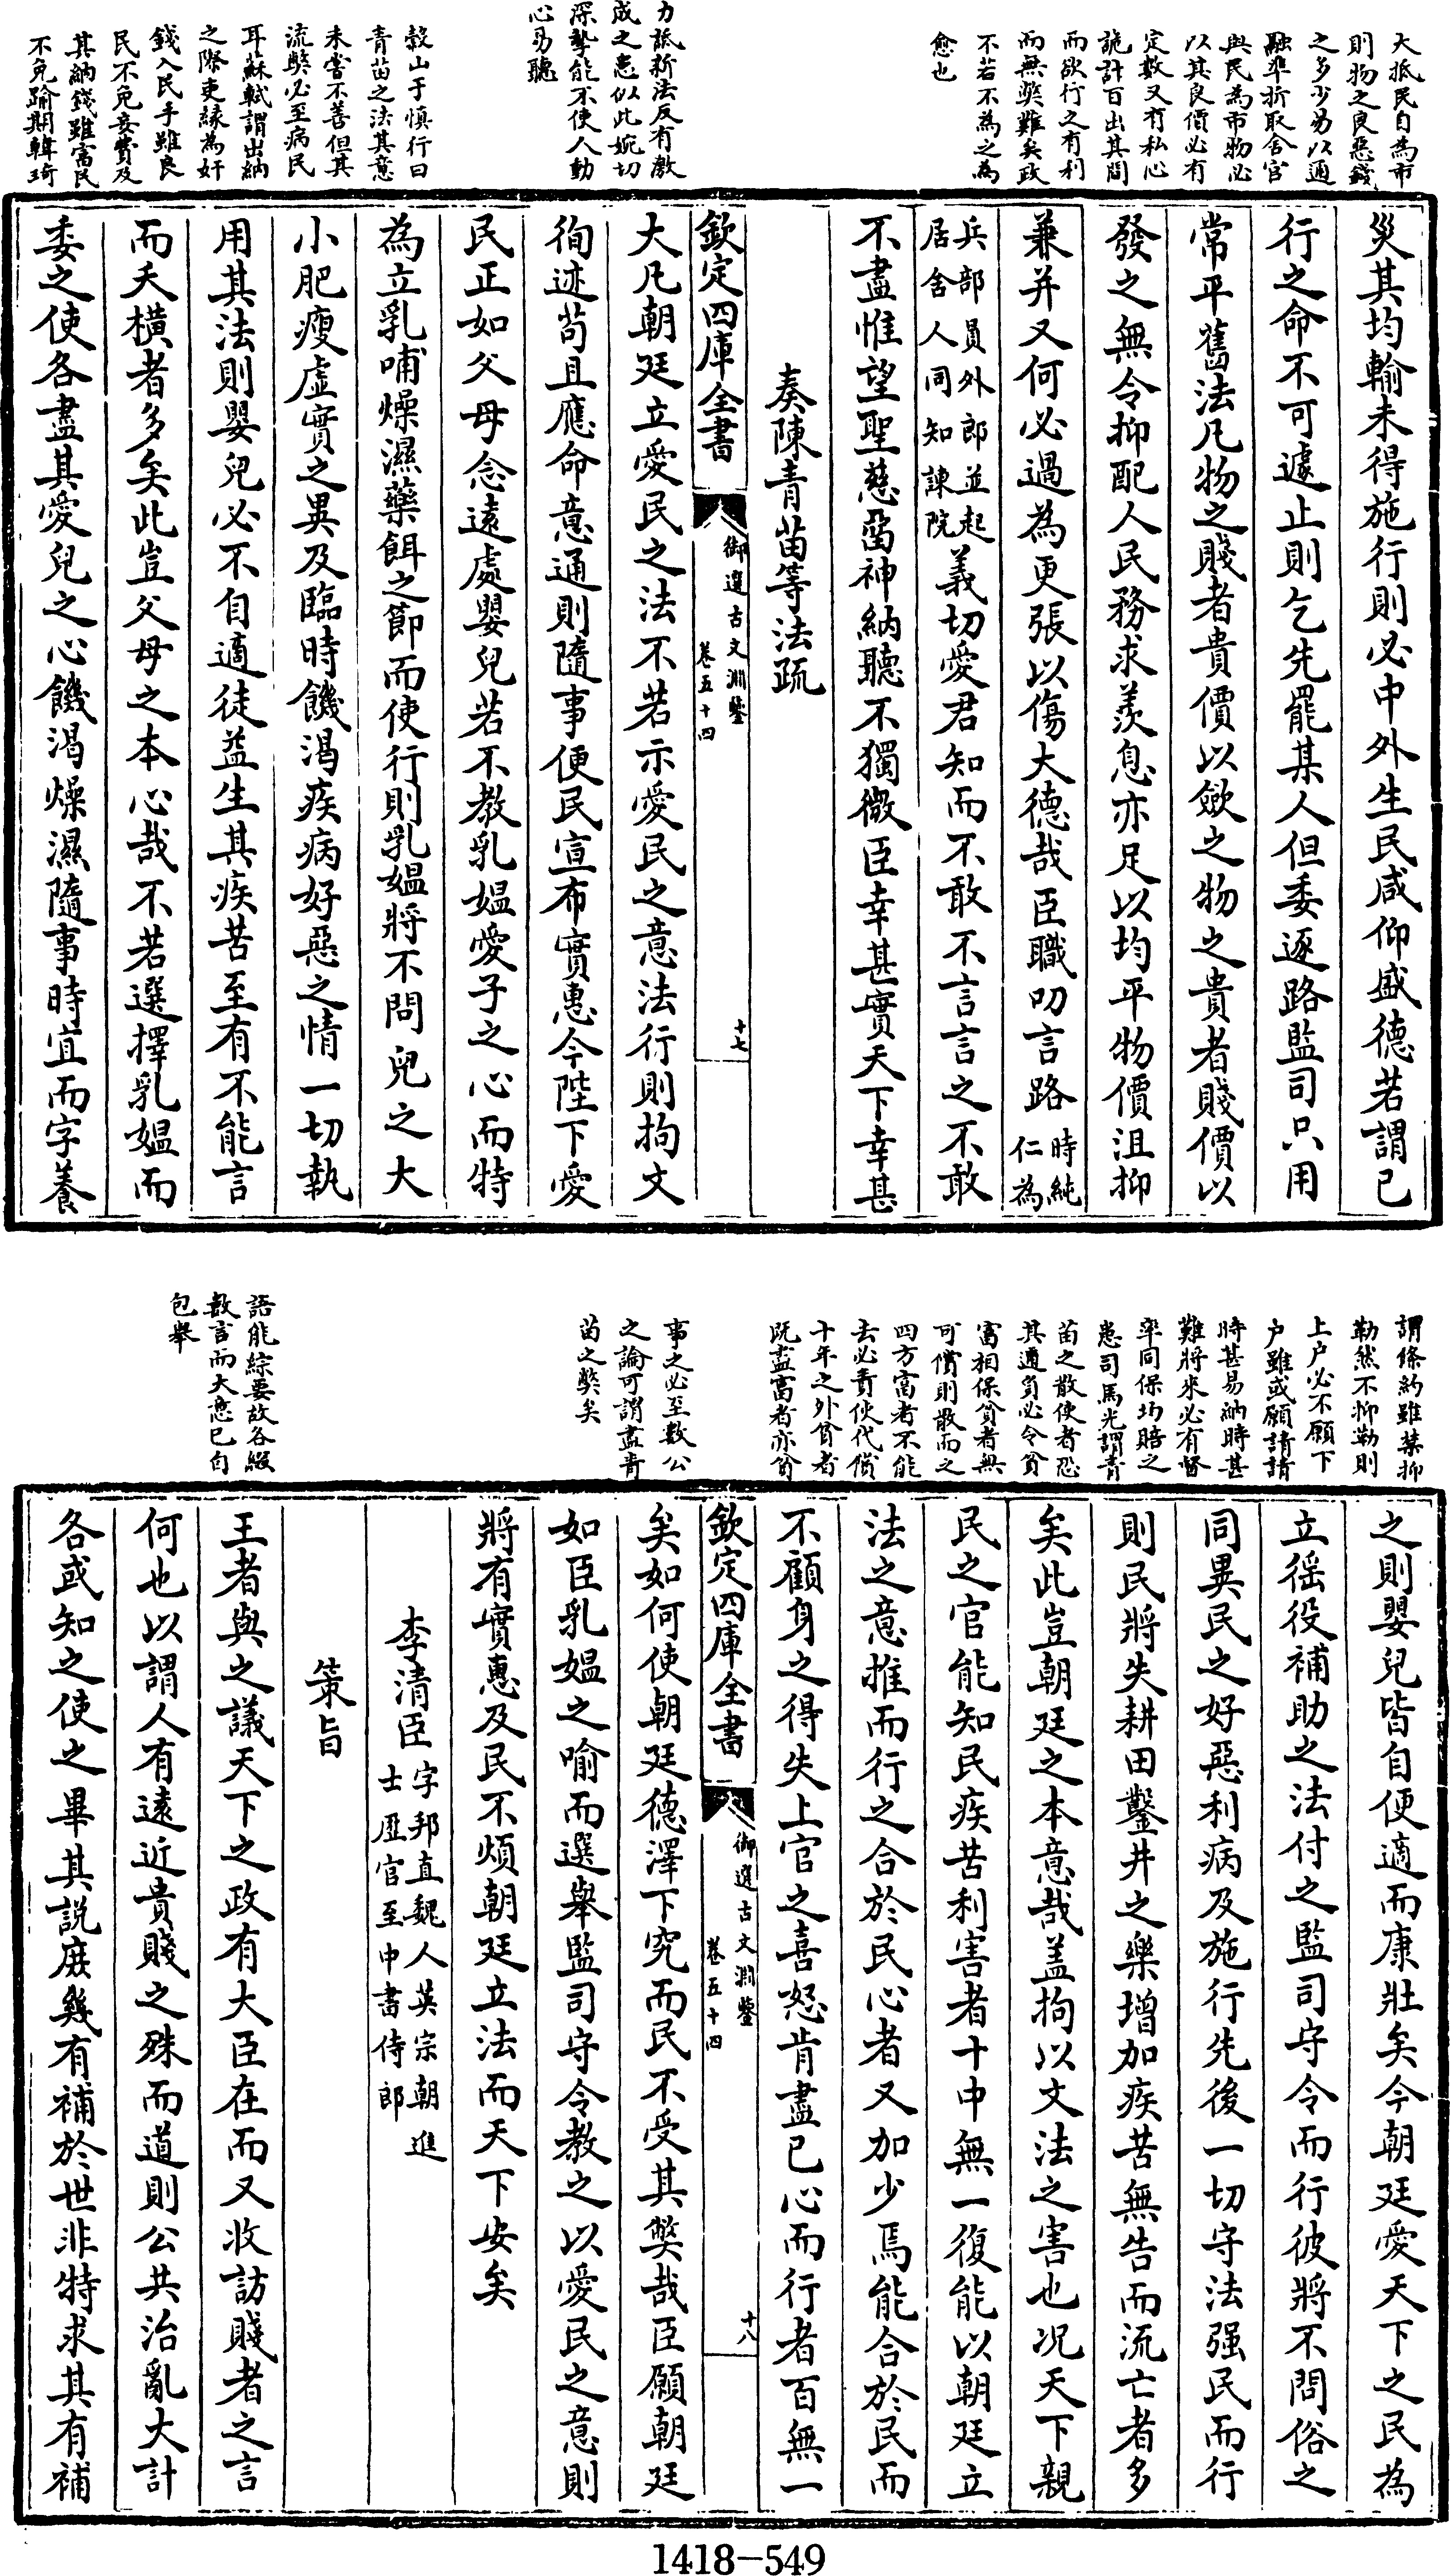 大抵民自為市
則物之良惡錢
之多少易以通
融準折取舍官
與民為市物必
以其良價必有
定數又有私心
詭計百出其間
而欲行之有利
而無獘難矣政
不若不為之為
愈也
力詆新法反有敷
成之患似此婉切
深摯能不使人動
心易聽
穀山于慎行曰
青苗之法其意
未嘗不善但其
流獘必至病民
耳蘇軾謂出納
之際吏緣為奸
錢入民手雖良
民不免妄費及
其納錢雖富民
不免踰期韓琦
災其均輸未得施行則必中外生民咸仰盛德若謂已
行之命不可遽止則乞先罷某人但委逐路監司只用
常平舊法凡物之賤者貴價以斂之物之貴者賤價以
發之無令抑配人民務求羨息亦足以均平物價沮抑
兼并又何必過為更張以傷大德哉臣職叨言路時純仁為
兵部員外郎並起居舍人同知諫院義切愛君知而不敢不言言之不敢
不盡惟望聖慈留神納聽不獨微臣幸甚實天下幸甚
奏陳青苗等法疏
欽定四庫全書
御選古文淵鑒
卷五十四
十七
大凡朝廷立愛民之法不若示愛民之意法行則拘文
徇迹苟且應命意通則隨事便民宣布實惠今陛下愛
民正如父母念遠處嬰兒若不教乳媼愛子之心而特
為立乳哺燥濕藥餌之節而使行則乳媼將不問兒之大
小肥瘦虛實之異及臨時饑渴疾病好惡之情一切執
用其法則嬰兒必不自適徒益生其疾苦至有不能言
而夭橫者多矣此豈父母之本心哉不若選擇乳媼而
委之使各盡其愛兒之心饑渴燥濕隨事時宜而字養
謂條約雖禁抑
勒然不抑勒則
上户必不願下
户雖或願請請
時甚易納時甚
難將來必有督
率同保均賠之
患司馬光謂青
苗之散使者恐
其逋負必令貧
富相保貧者無
可償則散而之
四方富者不能
去必責使代償
十年之外貧者
既盡富者亦貧
事之必至數公
之論可謂盡青
苗之獘矣
語能綜要故各綴
數言而大意已自
包舉
之則嬰兒皆自便適而康壯矣今朝廷愛天下之民為
立徭役補助之法付之監司守令而行彼將不問俗之
同異民之好惡利病及施行先後一切守法强民而行
則民將失耕田鑿井之樂增加疾苦無告而流亡者多
矣此豈朝廷之本意哉盖拘以文法之害也况天下親
民之官能知民疾苦利害者十中無一復能以朝廷立
法之意推而行之合於民心者又加少焉能合於民而
不顧身之得失上官之喜怒肯盡已心而行者百無一
欽定四庫全書
御選古文淵鑒
卷五十四
十八
矣如何使朝廷德澤下究而民不受其獘哉臣願朝廷
如臣乳媼之喻而選舉監司守令教之以愛民之意則
將有實惠及民不煩朝廷立法而天下安矣
李清臣字邦直魏人英宗朝進士歷官至中書侍郎
策旨
王者與之議天下之政有大臣在而又收訪賤者之言
何也以謂人有遠近貴賤之殊而道則公共治亂大計
各或知之使之畢其説庶幾有補於世非特求其有補
1418-549